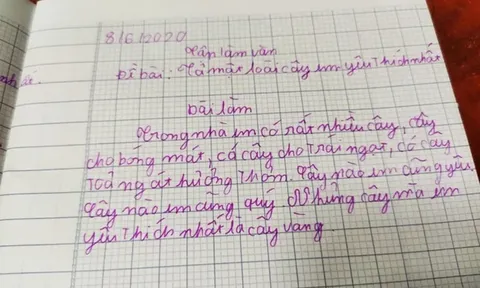 8/6/2020
Tập làm văn
Đề bài: Tả một loài cây em yêu thích nhất
Bài làm
Trong nhà em có rất nhiều cây, cây
cho bóng mát, có cây cho trái ngọt, có cây
toả ngát hương thơm. Cây nào em cũng yêu,
cây nào em cũng quý. Nhưng cây mà em
yêu thích nhất là cây vàng